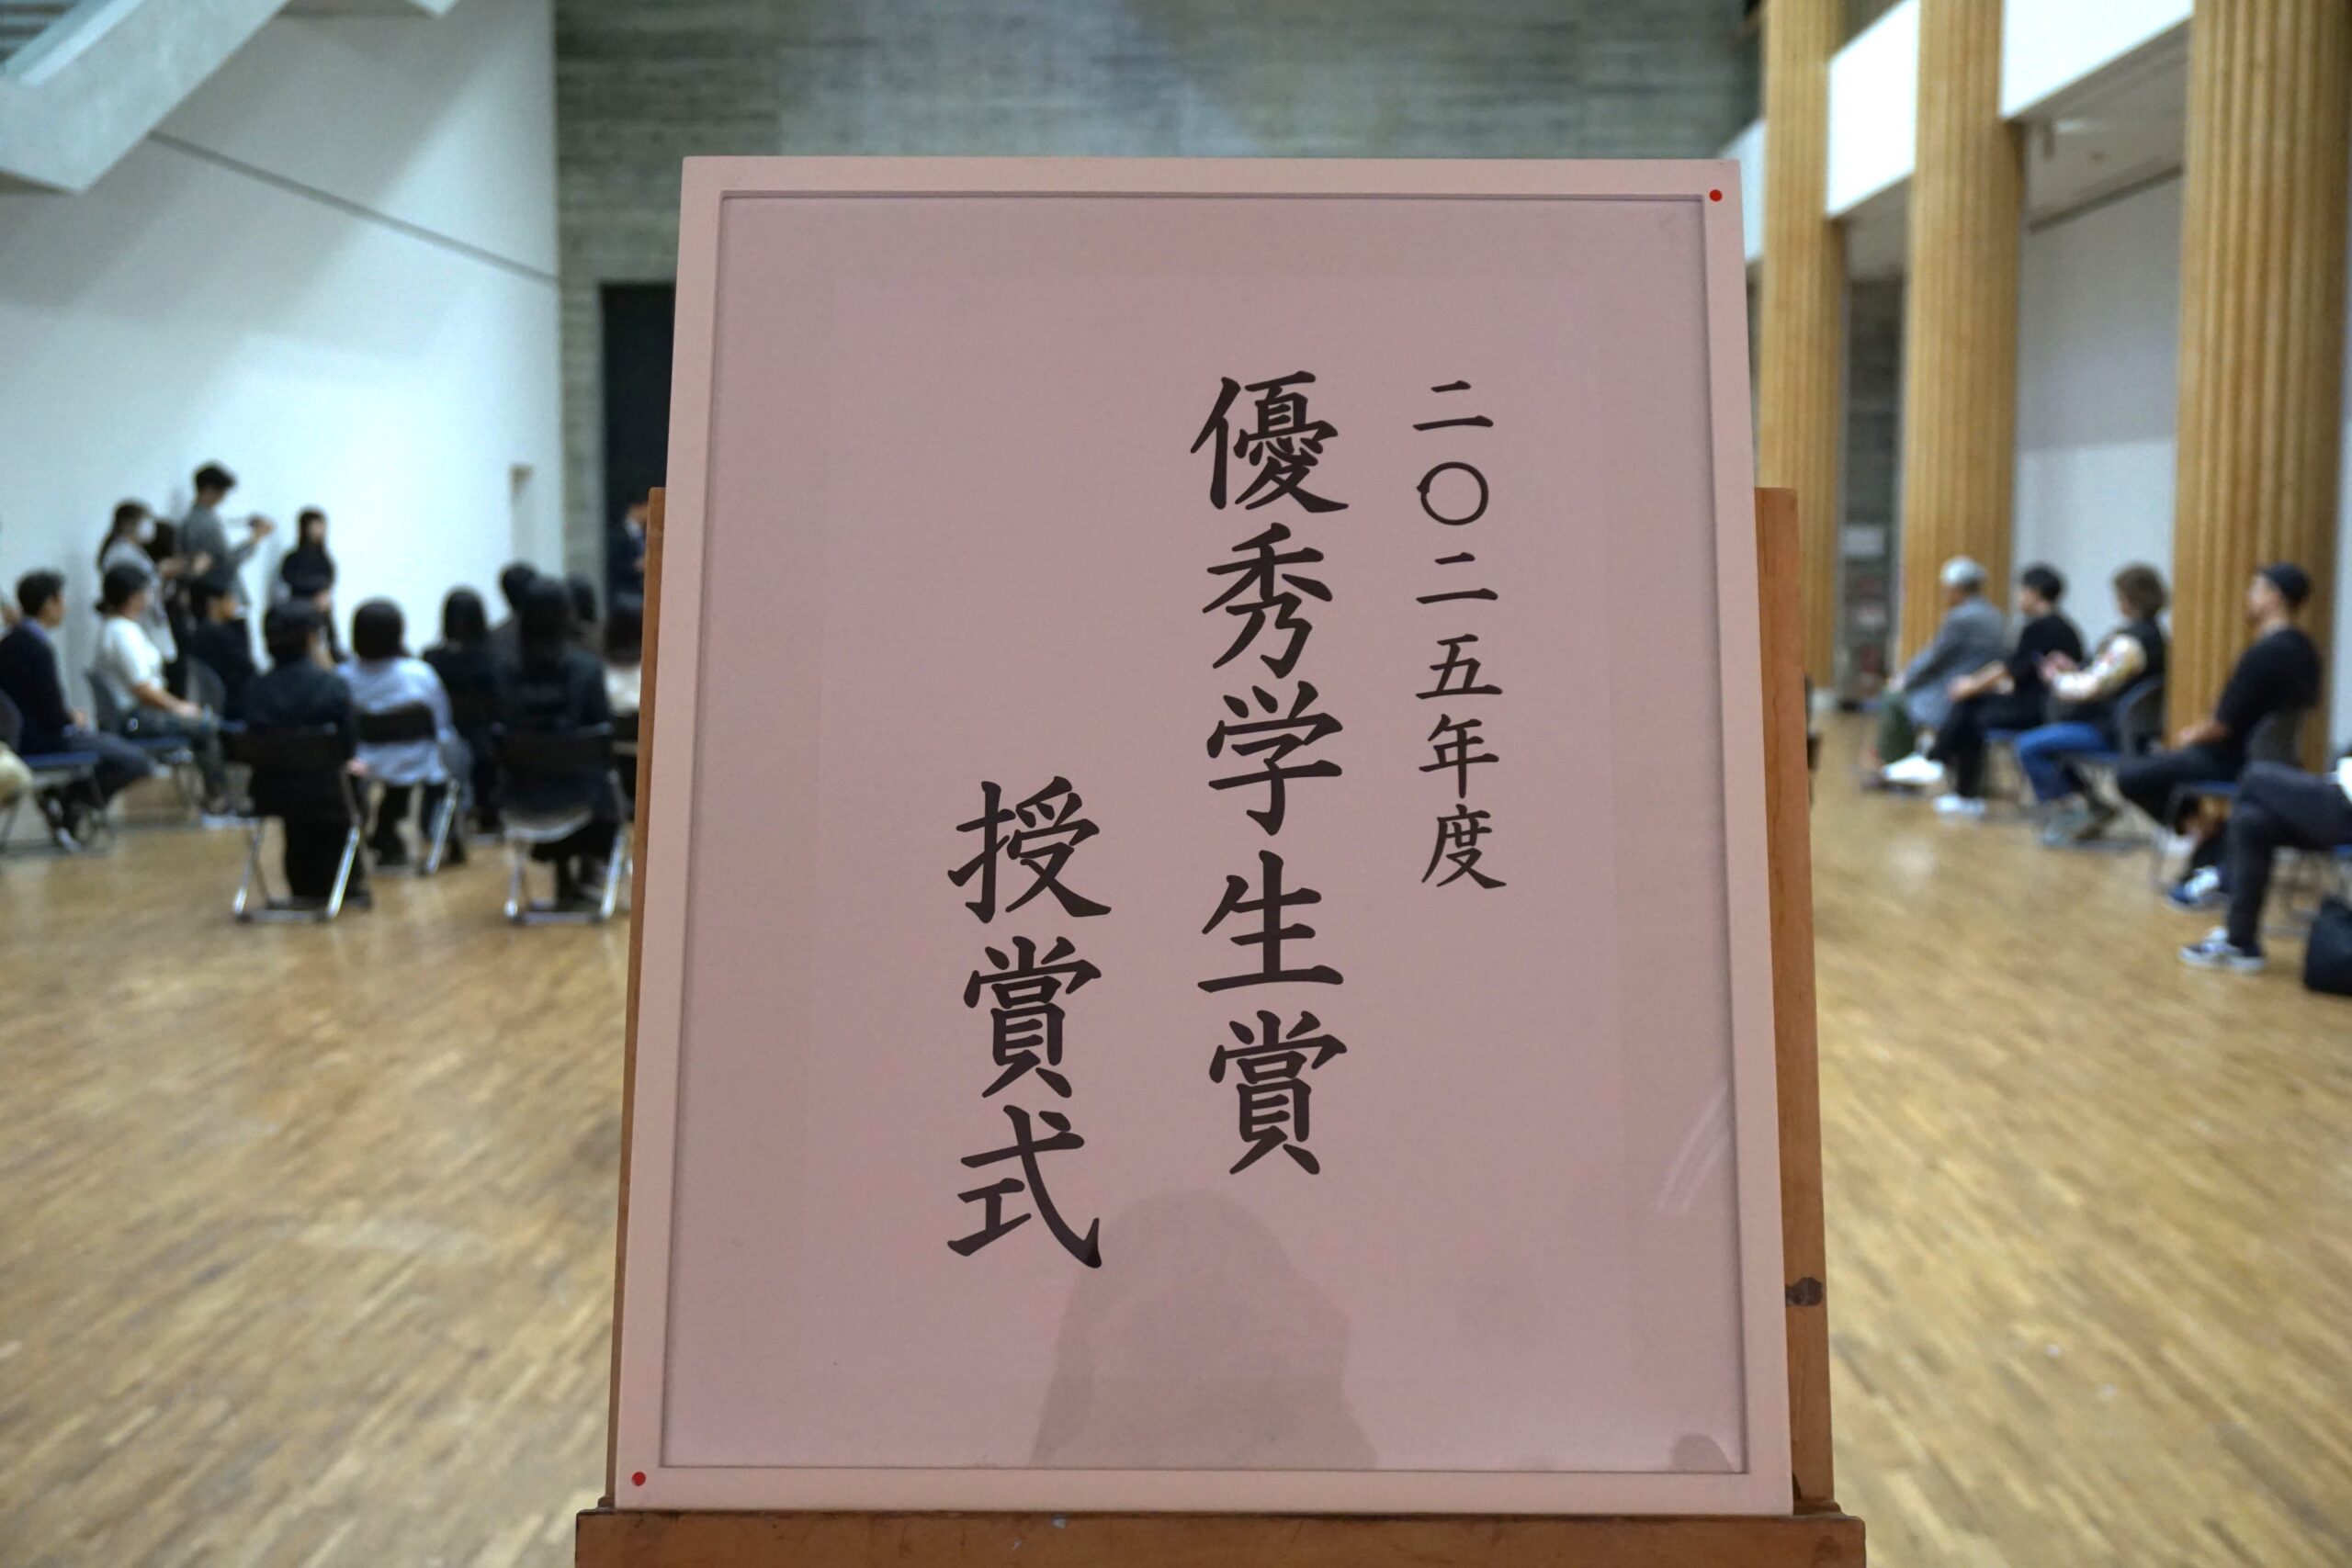 二〇二五年度
優秀学生賞
授賞式